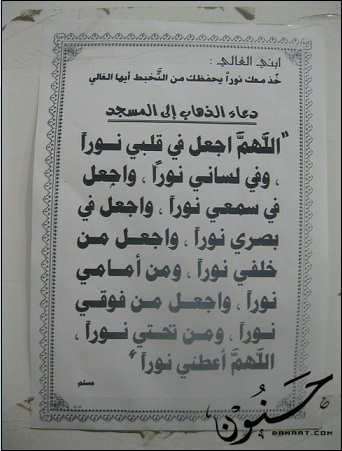 ابني الغالي :
خذ معك نوراً يحفظك من التخبط أيها الغالي
دعاء الذهاب إلى المسجد
"اللهمَّ اجعل في قلبي نـوراً
، وفي لساني نوراً ، واجعل
في سمعي نوراً ، واجعل في
بصري نوراً ، واجعل مـن
خلفي نوراً ، ومن أمـامي
نوراً ، واجعل مـن فوقـي
نـوراً ، ومـن تحتـي نـوراً ،
اللهمَّ أعطني نوراً"
مسلم
حسنون
DANAAT.COM